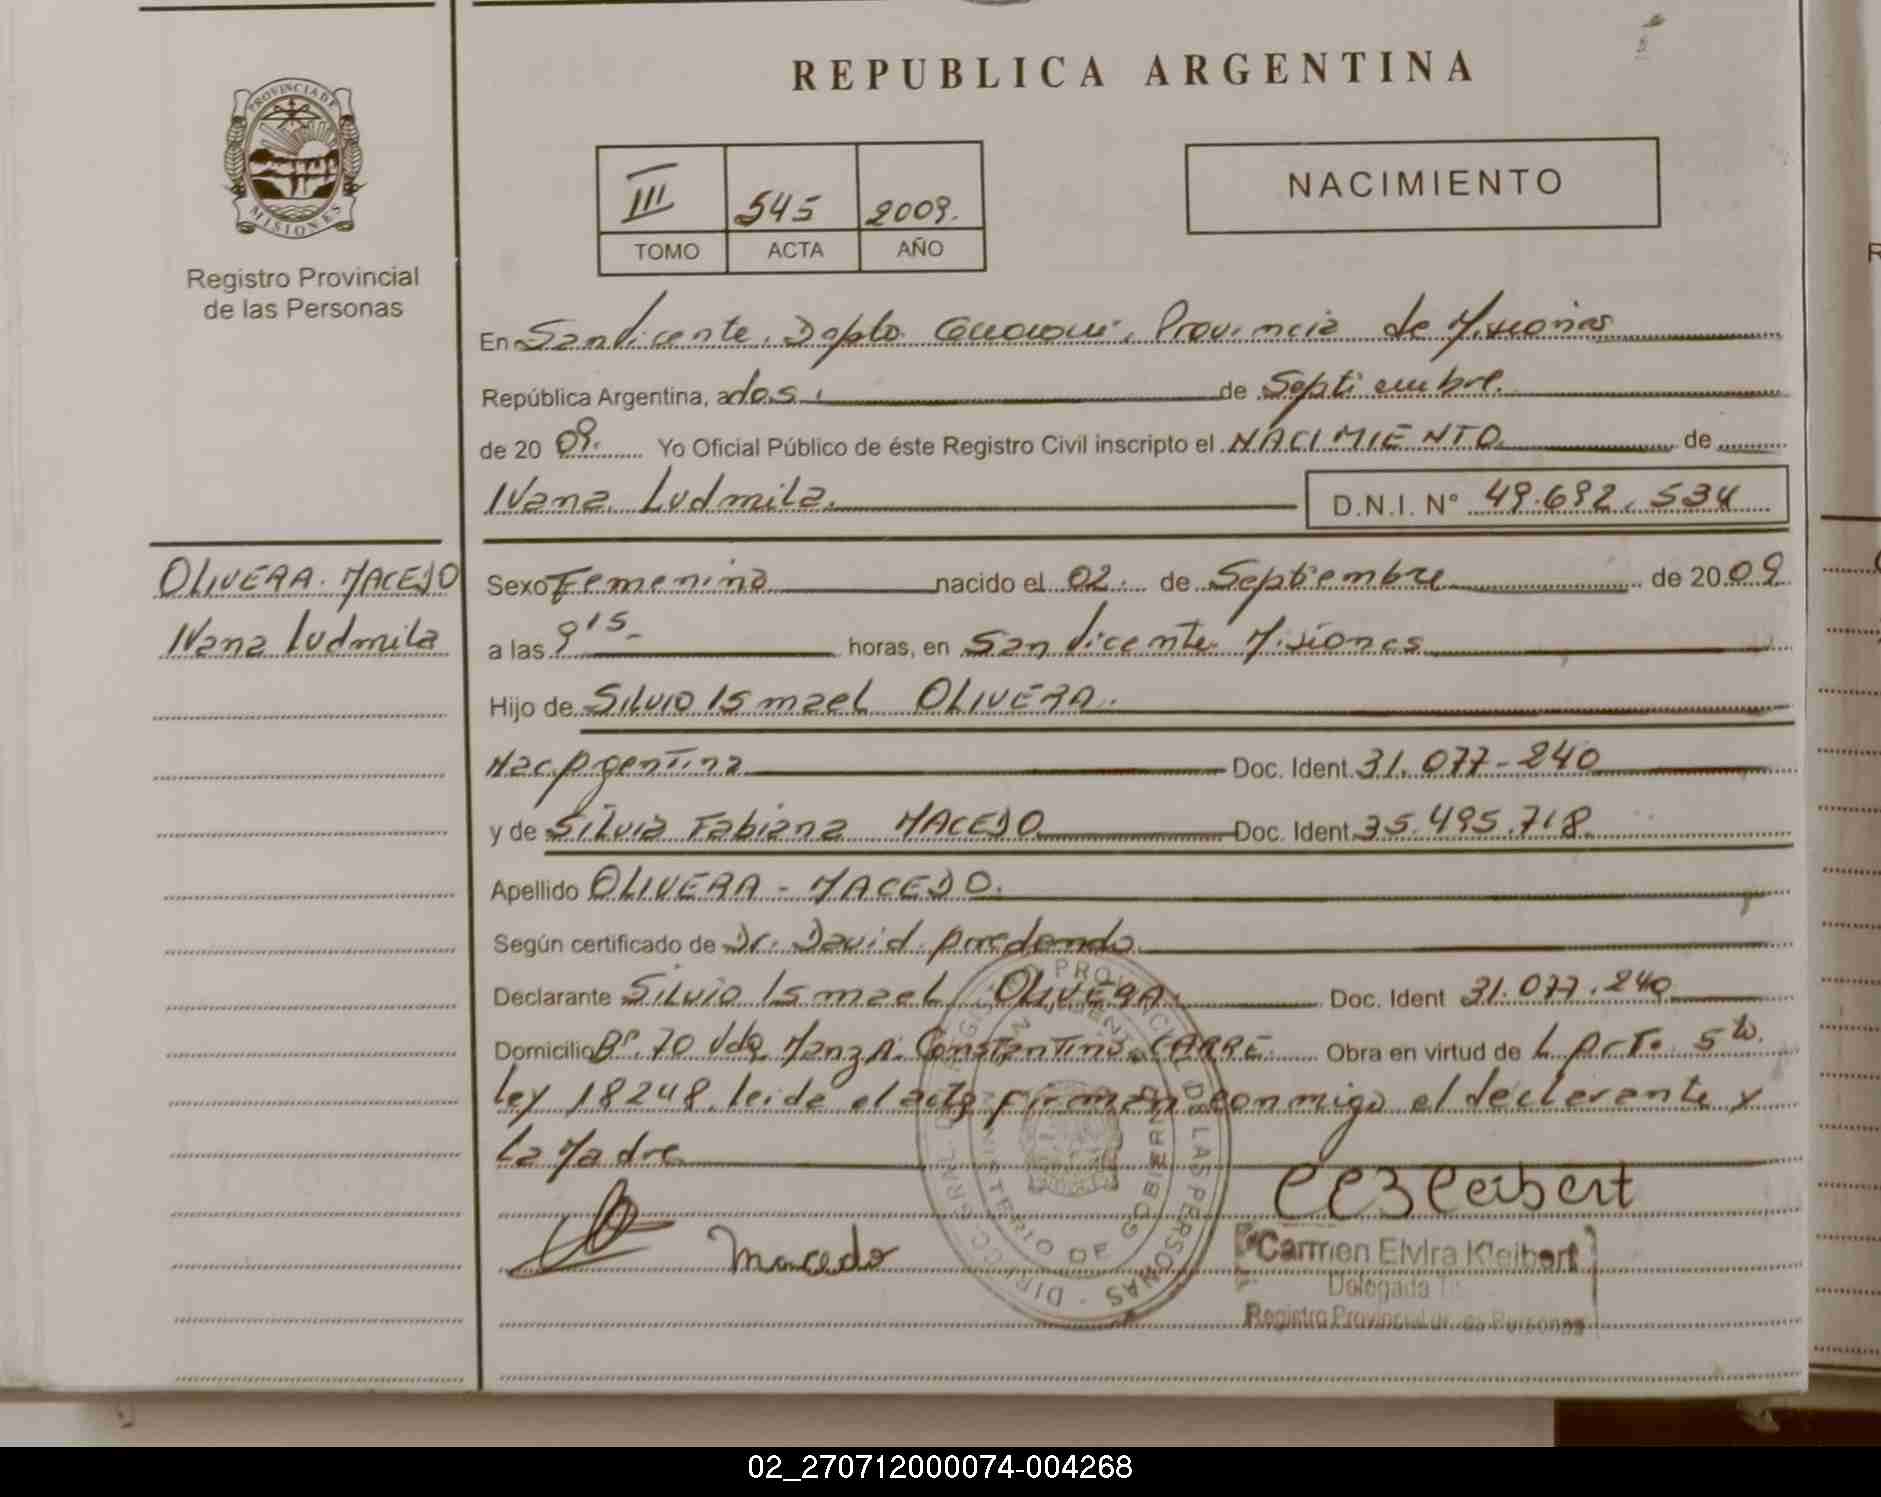 REPUBLICA ARGENTINA
PROVINCIA DE MISIONES
Registro Provincial
de las Personas
III 545 2009.
TOMO ACTA AÑO
NACIMIENTO
En San Vicente, Depto. Guaraní, Provincia de Misiones
República Argentina, a dos, de Septiembre.
de 20 09. Yo Oficial Público de éste Registro Civil inscripto el NACIMIENTO de
Ivana Ludmila. D.N.I. N° 49.692.534
OLIVERA. MACEDO
Ivana Ludmila
Sexo Femenino nacido el 02. de Septiembre de 20 09
a las 9 15 horas, en San Vicente Misiones
Hijo de Silvio Ismael OLIVERA.
Nac. Argentina Doc. Ident. 31.077-240
y de Silvia Fabiana MACEDO Doc. Ident. 35.495.718.
Apellido OLIVERA - MACEDO.
Según certificado de Dr. David Arredondo
Declarante Silvio Ismael OLIVERA. Doc. Ident 31.077.240
Domicilio B°. 70 Vdas Manz A. Constantino CARRE Obra en virtud de L Art. 5to.
ley 18248, leida el acta firman conmigo el declarante y
la Madre
Macedo
CEKleibert
Carmen Elvira Kleibert
Delegada
Registro Provincial de las Personas
DIRECC. GRAL. DEL REGISTRO PROVINCIAL DE LAS PERSONAS
MINISTERIO DE GOBIERNO
02_270712000074-004268